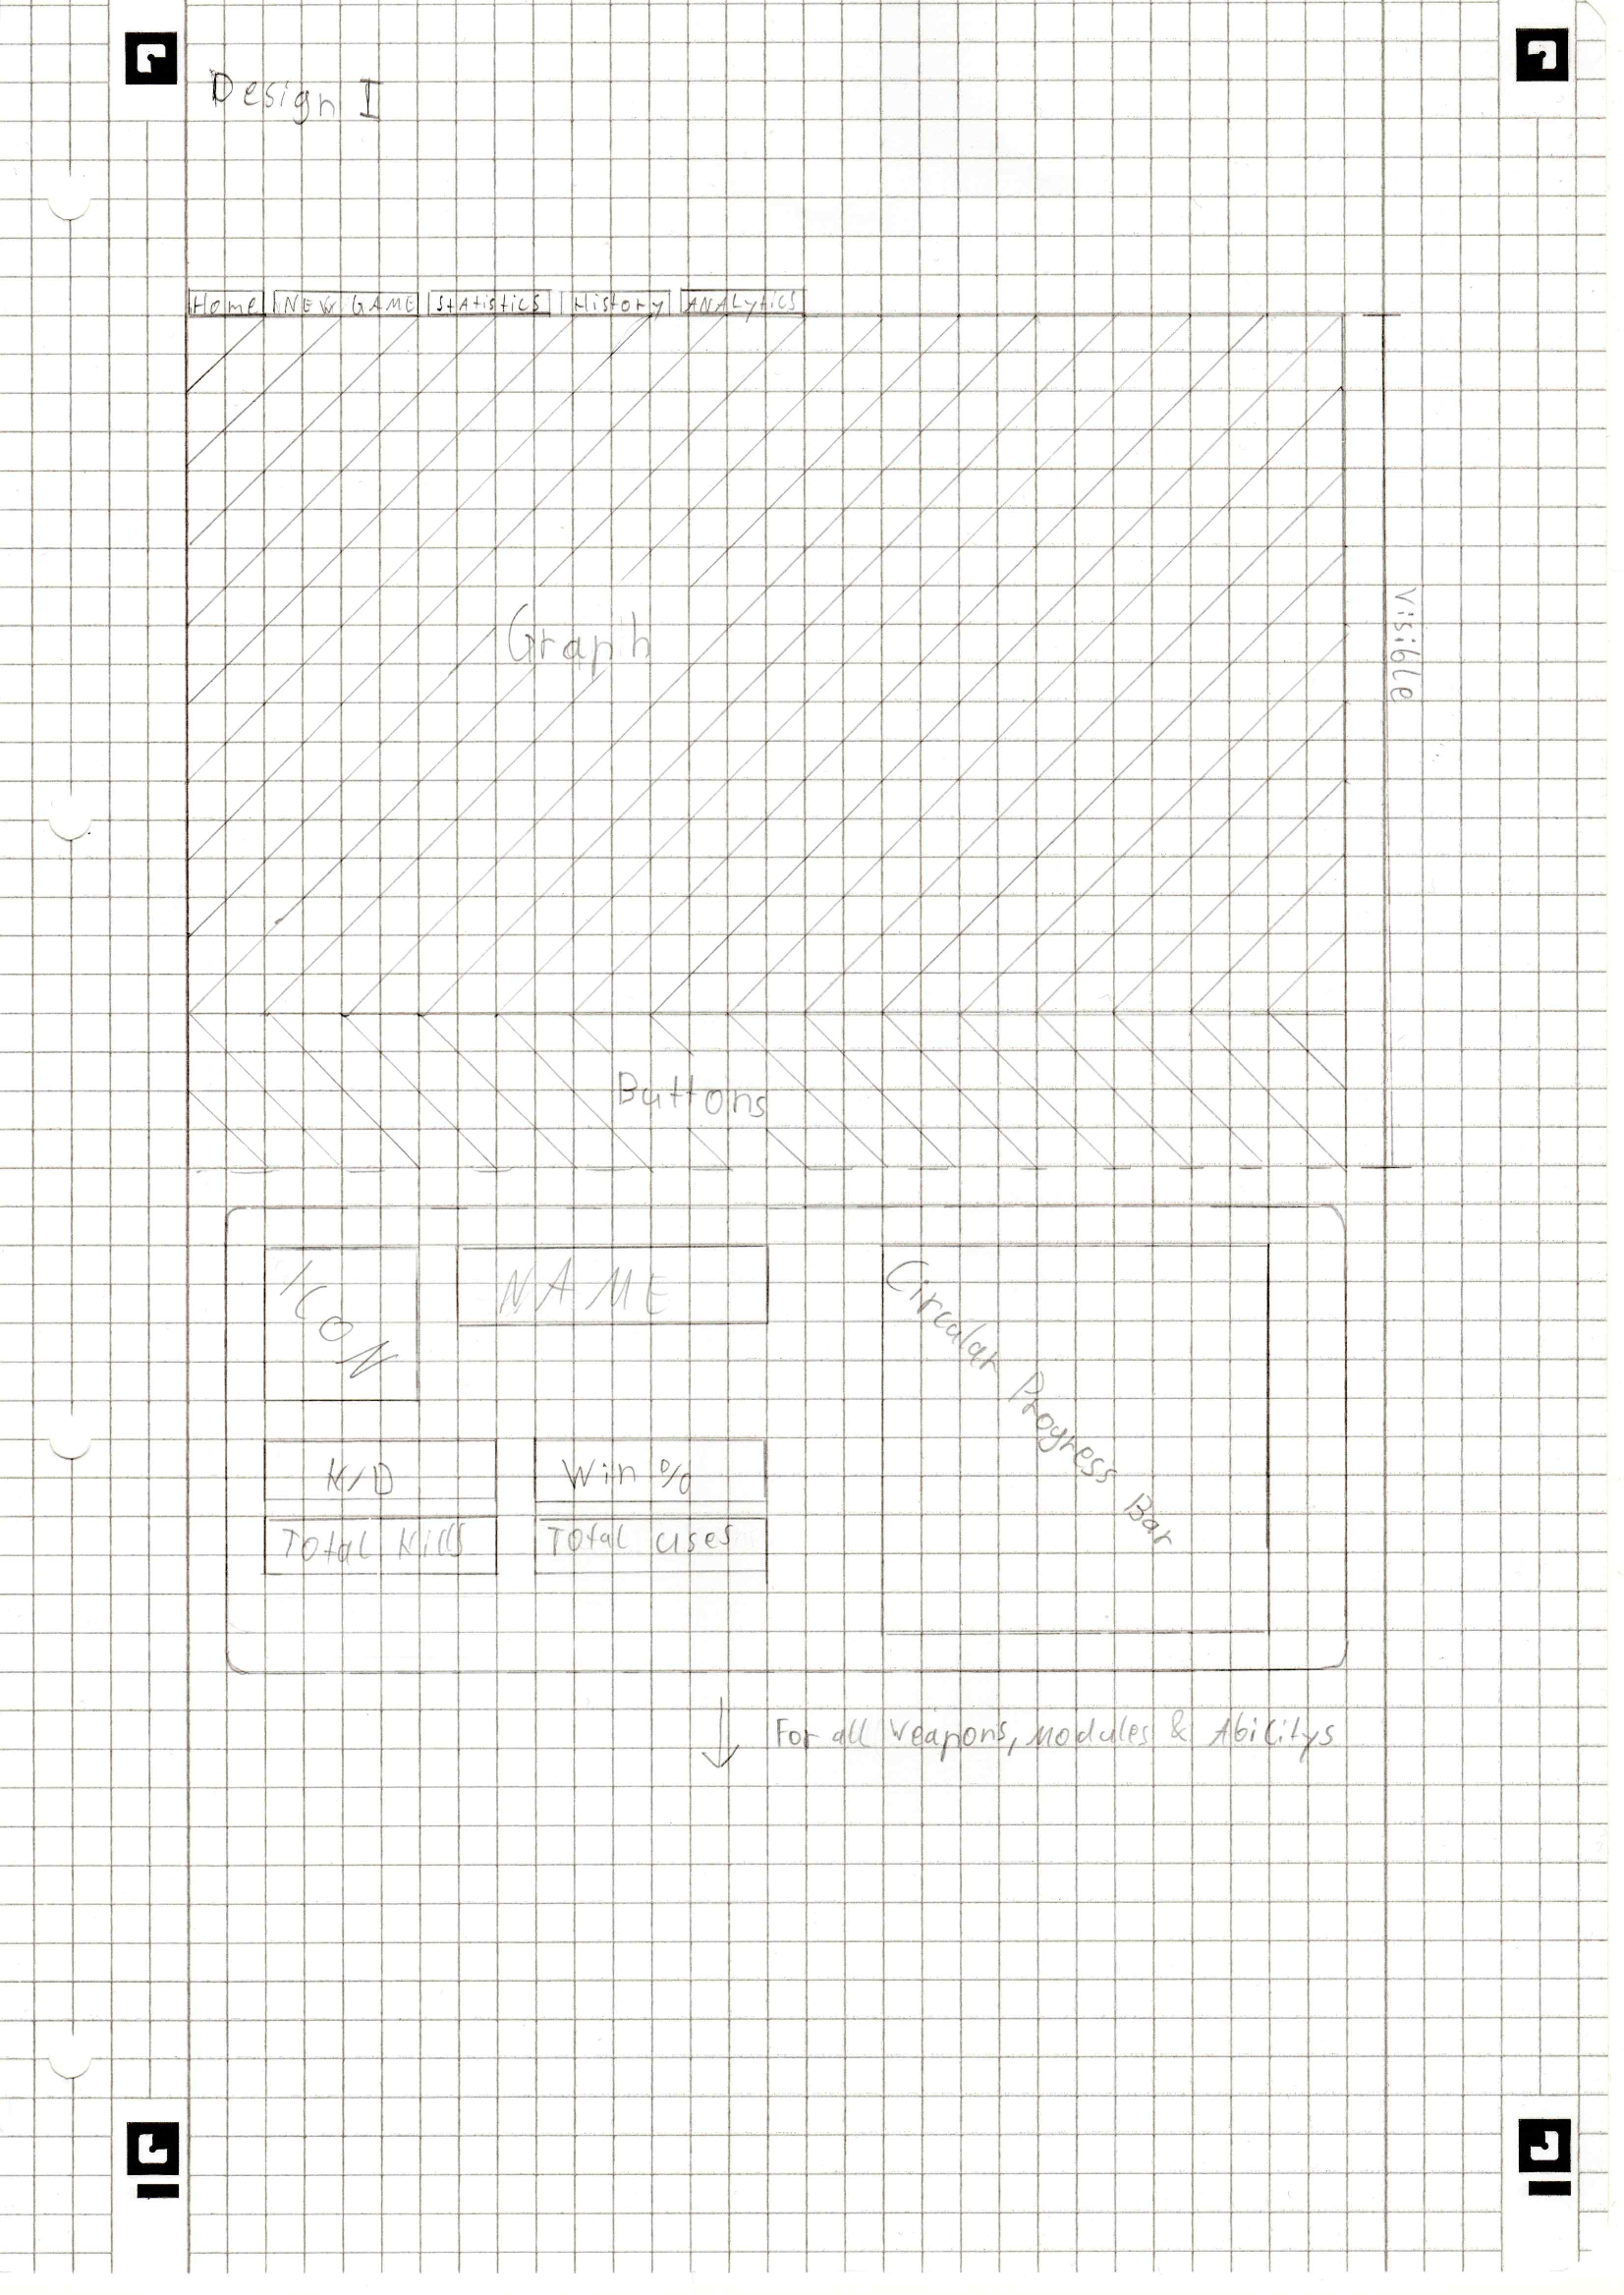 Design I
Home NEW GAME Statistics History ANALytics
Graph
Visible
Buttons
ICON
NAME
Circular Progress Bar
K/D
Win %
Total Kills
Total uses
For all Weapons, Modules & Abilitys